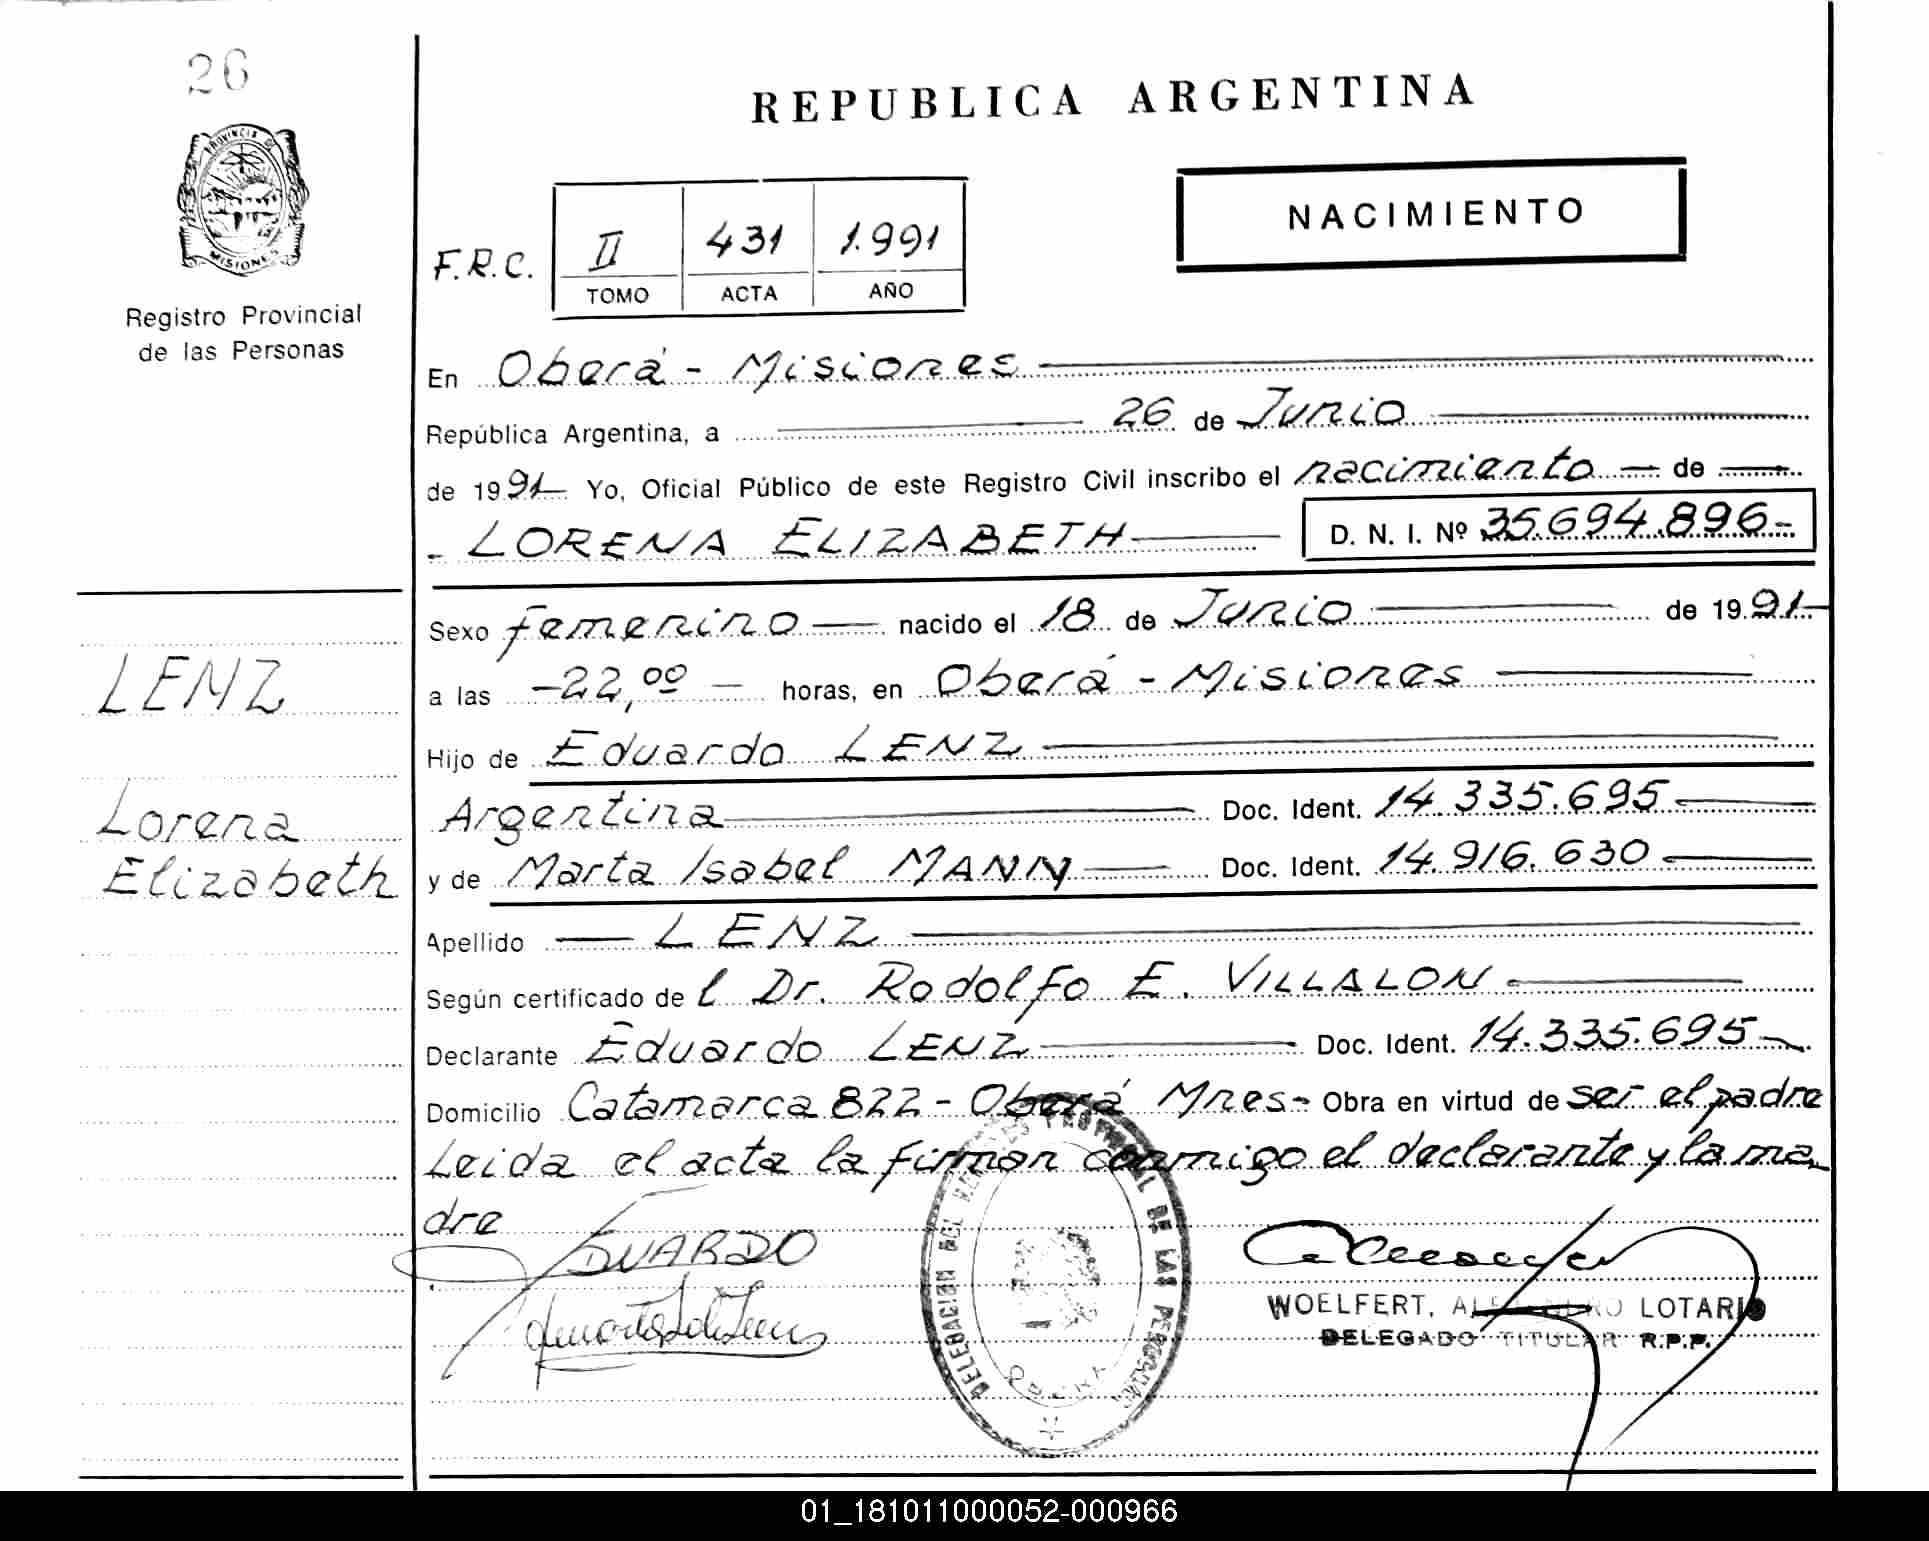 26
PROVINCIA DE
MISIONES
Registro Provincial
de las Personas
LENZ
Lorena
Elizabeth
REPUBLICA ARGENTINA
NACIMIENTO
F.R.C.
II 431 1.991
TOMO ACTA AÑO
En Oberá - Misiones
República Argentina, a 26 de Junio
de 1991 Yo, Oficial Público de este Registro Civil inscribo el nacimiento de
- LORENA ELIZABETH D. N. I. Nº 35.694.896-
Sexo femenino nacido el 18 de Junio de 1991
a las -22,00 - horas, en Oberá - Misiones
Hijo de Eduardo LENZ
Argentina Doc. Ident. 14.335.695
y de Marta Isabel MANN Doc. Ident. 14.916.630
Apellido LENZ
Según certificado de l Dr. Rodolfo E. VILLALON
Declarante Eduardo LENZ Doc. Ident. 14.335.695
Domicilio Catamarca 822 - Oberá Mnes- Obra en virtud de ser el padre
Leida el acta la firman conmigo el declarante y la ma
dre
EDUARDO
DELEGACION DEL REGISTRO PROVINCIAL DE LAS PERSONAS
OBERA
WOELFERT, ALEJANDRO LOTARIO
DELEGADO TITULAR R.P.P.
01_181011000052-000966